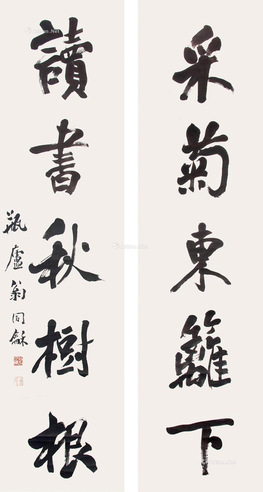 采菊東籬下
讀書秋樹根
瓶廬翁同龢